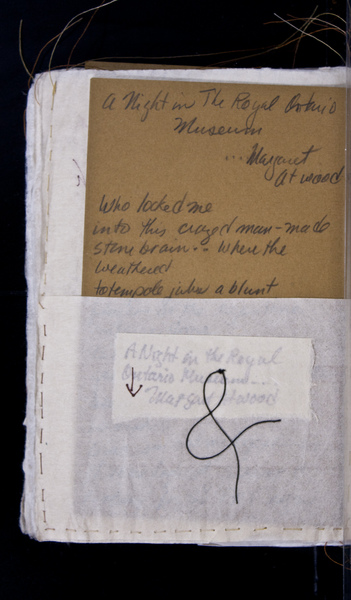 A Night in The Royal Ontario
Museum
... Margaret
Atwood
Who locked me
into this crazed man-made
stone brain.. Where the
weathered
totempole jabs a blunt
A Night in the Royal
Ontario Museum...
Margaret Atwood
&